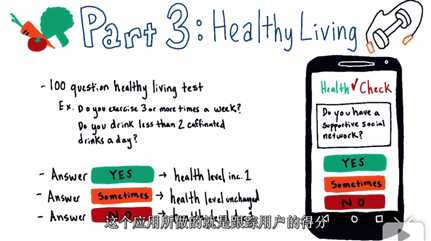 Part 3: Healthy Living
- 100 question healthy living test
Ex. Do you exercise 3 or more times a week?
Do you drink less than 2 caffinated
drinks a day?
- Answer YES → health level inc. 1
- Answer Sometimes → health level unchanged
- Answer NO
Health ✓ Check
Do you have a
supportive social
network?
YES
Sometimes
NO
这个应用所做的就是跟踪用户的得分